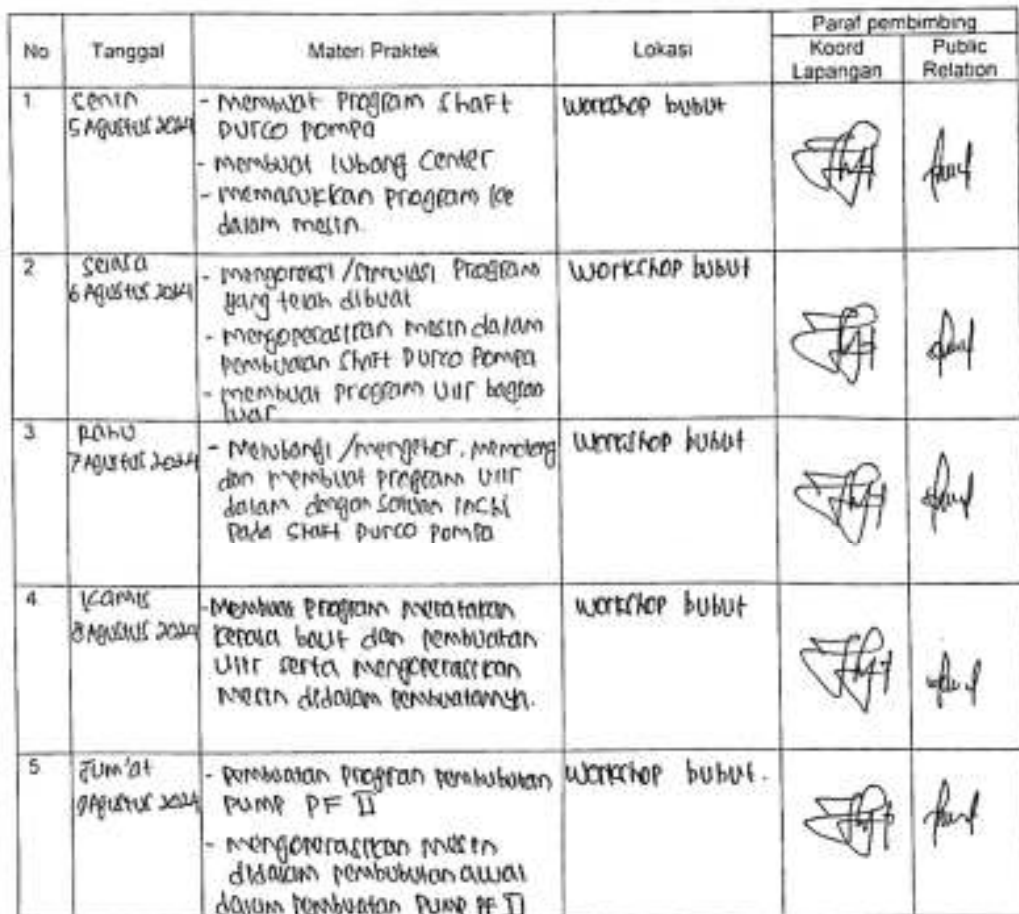 Paraf pembimbing
No Tanggal Materi Praktek Lokasi Koord Lapangan Public Relation
1 Senin
5 Agustus 2024
- Membuat Program Shaft
Durco Pompa
- Membuat lubang Center
- Memasukkan Program ke
dalam mesin.
Workshop bubut
2 Selasa
6 Agustus 2024
- Mengoreksi /simulasi Program
yang telah dibuat
- Mengoperasikan mesin dalam
pembuatan Shaft Durco Pompa
- Membuat program Ulir bagian
luar
Workshop bubut
3 Rabu
7 Agustus 2024
- Melubangi /mengebor, memotong
dan membuat program Ulir
dalam dengan Satuan inchi
Pada Shaft Durco Pompa
Workshop bubut
4 Kamis
8 Agustus 2024
- Membuat Program meratakan
kepala baut dan pembuatan
Ulir serta mengoperasikan
Mesin didalam pembuatannya.
Workshop bubut
5 Jum'at
9 Agustus 2024
- pembuatan program pembubutan
PUMP PF II
- mengoperasikan mesin
didalam pembubutan awal
dalam Pembuatan Pump PF II
Workshop bubut.